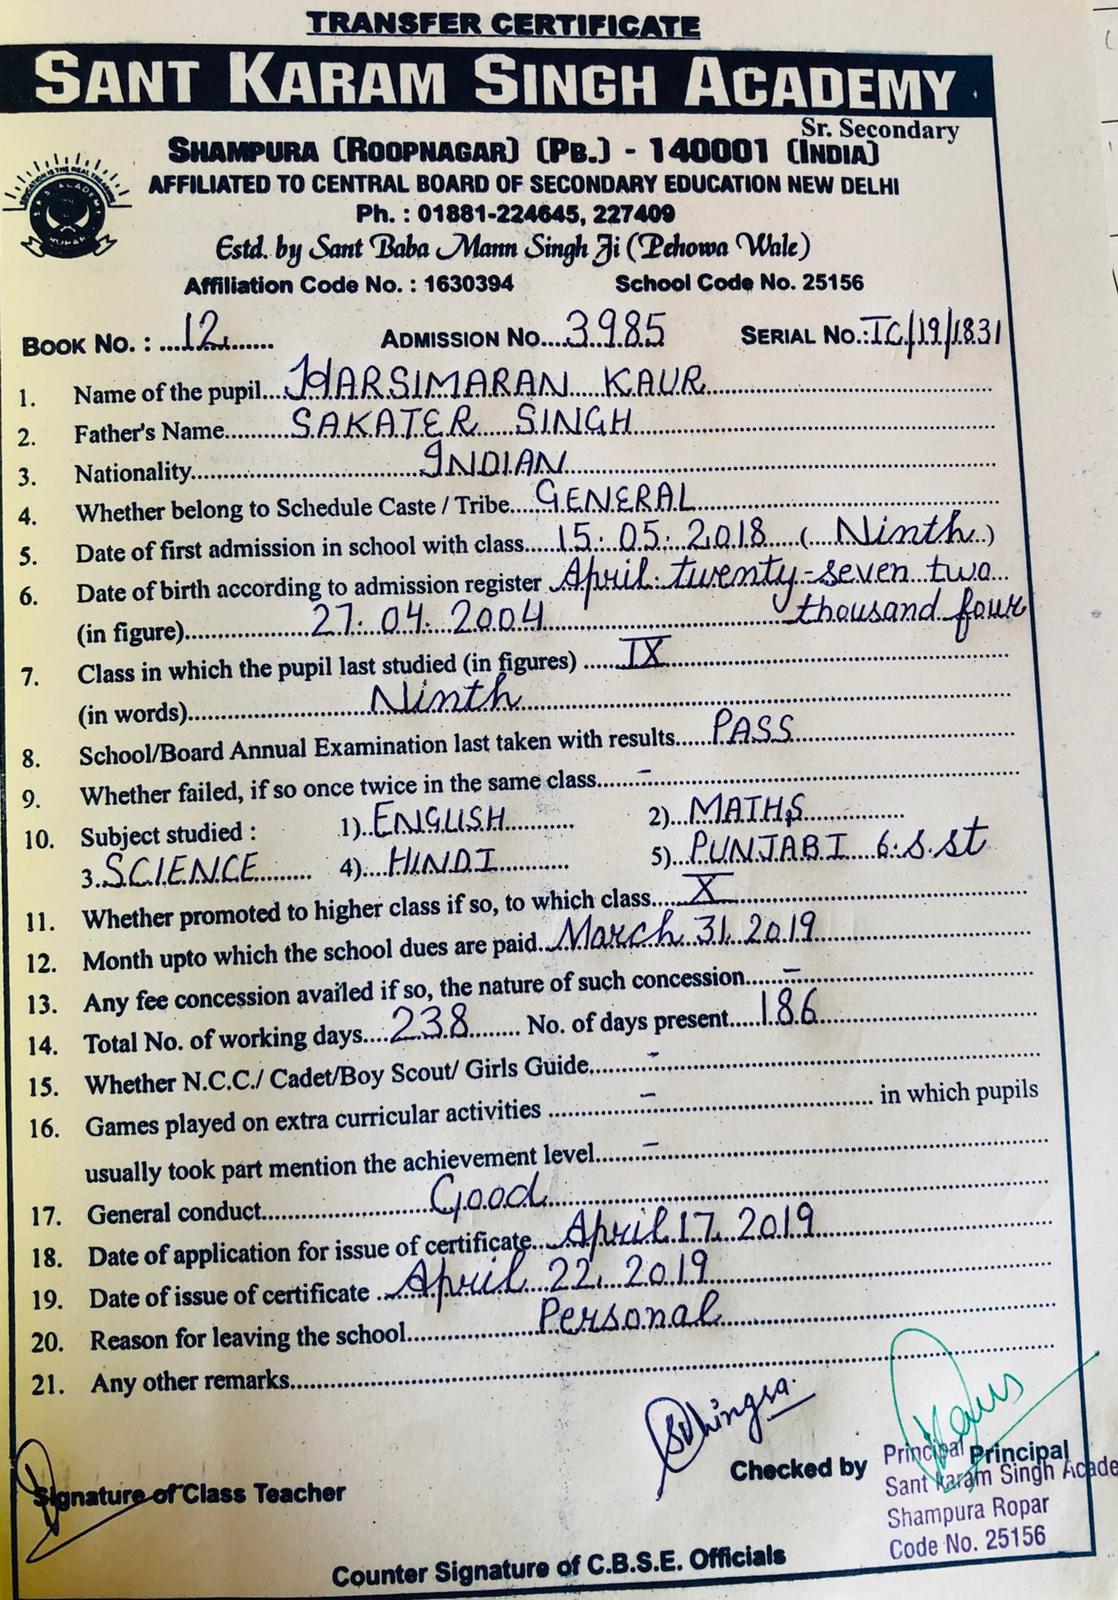 TRANSFER CERTIFICATE
SANT KARAM SINGH ACADEMY
Sr. Secondary
SHAMPURA (ROOPNAGAR) (PB.) - 140001 (INDIA)
AFFILIATED TO CENTRAL BOARD OF SECONDARY EDUCATION NEW DELHI
Ph. : 01881-224645, 227409
Estd. by Sant Baba Mann Singh Ji (Pehowa Wale)
Affiliation Code No. : 1630394 School Code No. 25156
BOOK No. : ....12........ ADMISSION No....3985 SERIAL No.:TC/19/1831
1. Name of the pupil....HARSIMARAN KAUR....
2. Father's Name........SAKATER SINGH....
3. Nationality........INDIAN....
4. Whether belong to Schedule Caste / Tribe....GENERAL....
5. Date of first admission in school with class.....15.05.2018....(....Ninth..)
6. Date of birth according to admission register April twenty-seven two
thousand four
(in figure)........27.04.2004....
7. Class in which the pupil last studied (in figures) ......IX....
(in words)........Ninth....
8. School/Board Annual Examination last taken with results......PASS....
9. Whether failed, if so once twice in the same class......-....
10. Subject studied : 1)..ENGLISH.......... 2)...MATHS..........
3.SCIENCE......... 4)....HINDI.......... 5)..PUNJABI 6.S.St
11. Whether promoted to higher class if so, to which class.....X....
12. Month upto which the school dues are paid..March 31, 2019....
13. Any fee concession availed if so, the nature of such concession......-....
14. Total No. of working days....238....... No. of days present.....186....
15. Whether N.C.C./ Cadet/Boy Scout/ Girls Guide........-....
16. Games played on extra curricular activities ........-........ in which pupils
usually took part mention the achievement level......-....
17. General conduct........Good....
18. Date of application for issue of certificate...April 17, 2019....
19. Date of issue of certificate ...April 22, 2019....
20. Reason for leaving the school........Personal....
21. Any other remarks........
Signature of Class Teacher Checked by Principal
Principal
Sant Karam Singh Acade
Shampura Ropar
Code No. 25156
Counter Signature of C.B.S.E. Officials